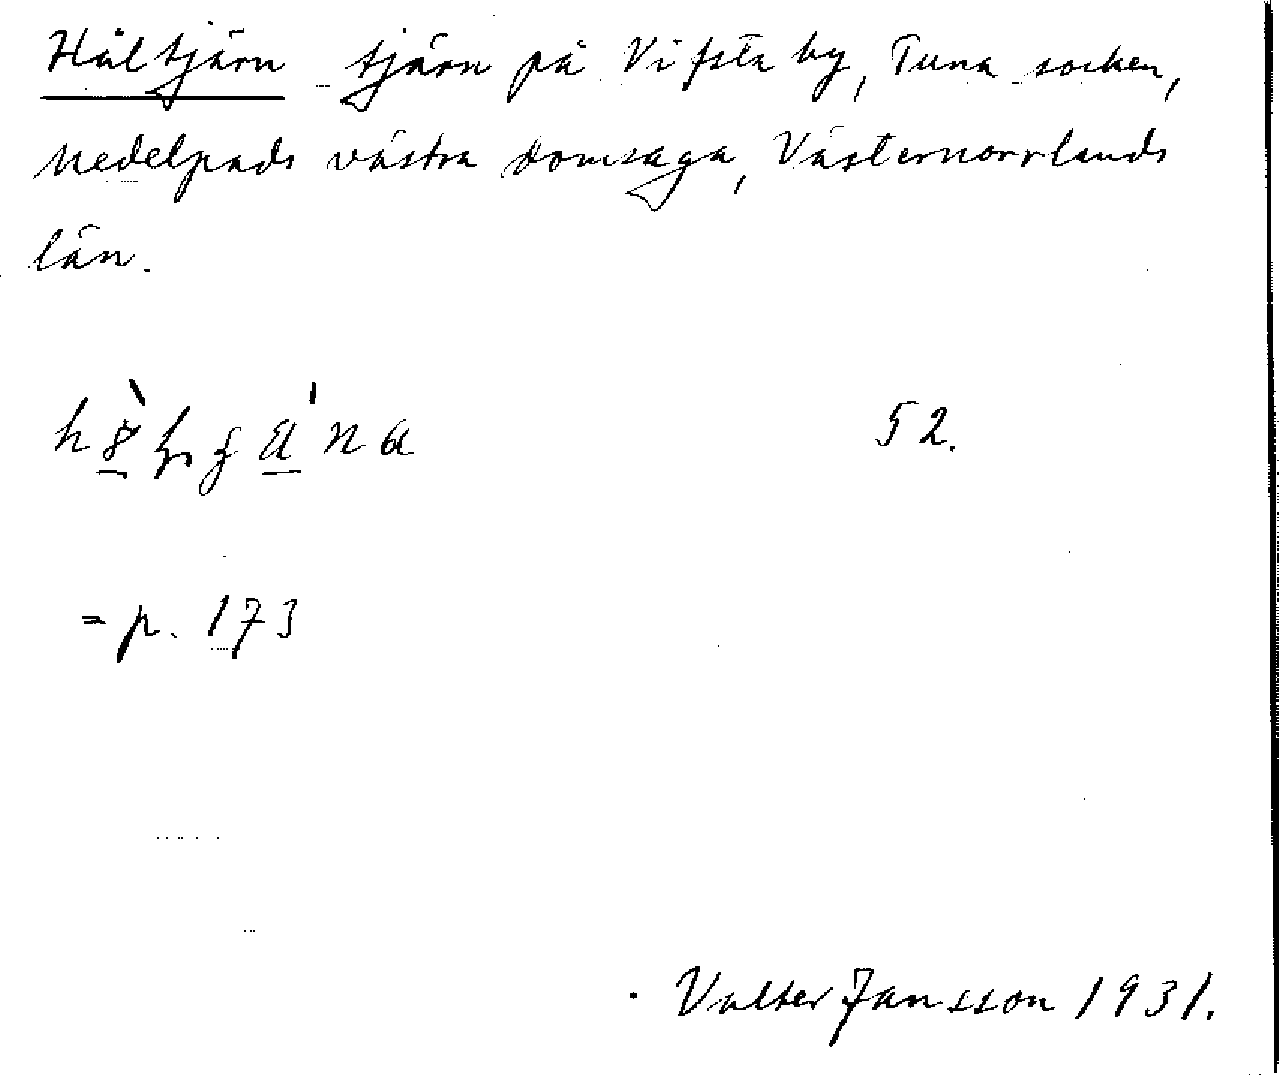 Håltjärn tjärn på Vifsta by, Tuna socken,
Medelpads västra domsaga, Västernorrlands
län.
52.
= p. 173
Valter Jansson 1931.